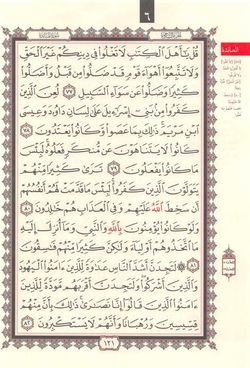 ٦
قُلْ يَٰٓأَهْلَ ٱلْكِتَٰبِ لَا تَغْلُوا۟ فِى دِينِكُمْ غَيْرَ ٱلْحَقِّ
وَلَا تَتَّبِعُوٓا۟ أَهْوَآءَ قَوْمٍ قَدْ ضَلُّوا۟ مِن قَبْلُ وَأَضَلُّوا۟
كَثِيرًا وَضَلُّوا۟ عَن سَوَآءِ ٱلسَّبِيلِ ٧٧ لُعِنَ ٱلَّذِينَ
كَفَرُوا۟ مِنۢ بَنِىٓ إِسْرَٰٓءِيلَ عَلَىٰ لِسَانِ دَاوُۥدَ وَعِيسَى
ٱبْنِ مَرْيَمَ ذَٰلِكَ بِمَا عَصَوا۟ وَّكَانُوا۟ يَعْتَدُونَ
٧٨ كَانُوا۟ لَا يَتَنَاهَوْنَ عَن مُّنكَرٍ فَعَلُوهُ لَبِئْسَ
مَا كَانُوا۟ يَفْعَلُونَ ٧٩ تَرَىٰ كَثِيرًا مِّنْهُمْ
يَتَوَلَّوْنَ ٱلَّذِينَ كَفَرُوا۟ لَبِئْسَ مَا قَدَّمَتْ لَهُمْ أَنفُسُهُمْ
أَن سَخِطَ ٱللَّهُ عَلَيْهِمْ وَفِى ٱلْعَذَابِ هُمْ خَٰلِدُونَ ٨٠
وَلَوْ كَانُوا۟ يُؤْمِنُونَ بِٱللَّهِ وَٱلنَّبِىِّ وَمَآ أُنزِلَ إِلَيْهِ
مَا ٱتَّخَذُوهُمْ أَوْلِيَآءَ وَلَٰكِنَّ كَثِيرًا مِّنْهُمْ فَٰسِقُونَ
٨١ لَتَجِدَنَّ أَشَدَّ ٱلنَّاسِ عَدَٰوَةً لِّلَّذِينَ ءَامَنُوا۟ ٱلْيَهُودَ
وَٱلَّذِينَ أَشْرَكُوا۟ وَلَتَجِدَنَّ أَقْرَبَهُم مَّوَدَّةً لِّلَّذِينَ
ءَامَنُوا۟ ٱلَّذِينَ قَالُوٓا۟ إِنَّا نَصَٰرَىٰ ذَٰلِكَ بِأَنَّ مِنْهُمْ
قِسِّيسِينَ وَرُهْبَانًا وَأَنَّهُمْ لَا يَسْتَكْبِرُونَ ٨٢
١٢١